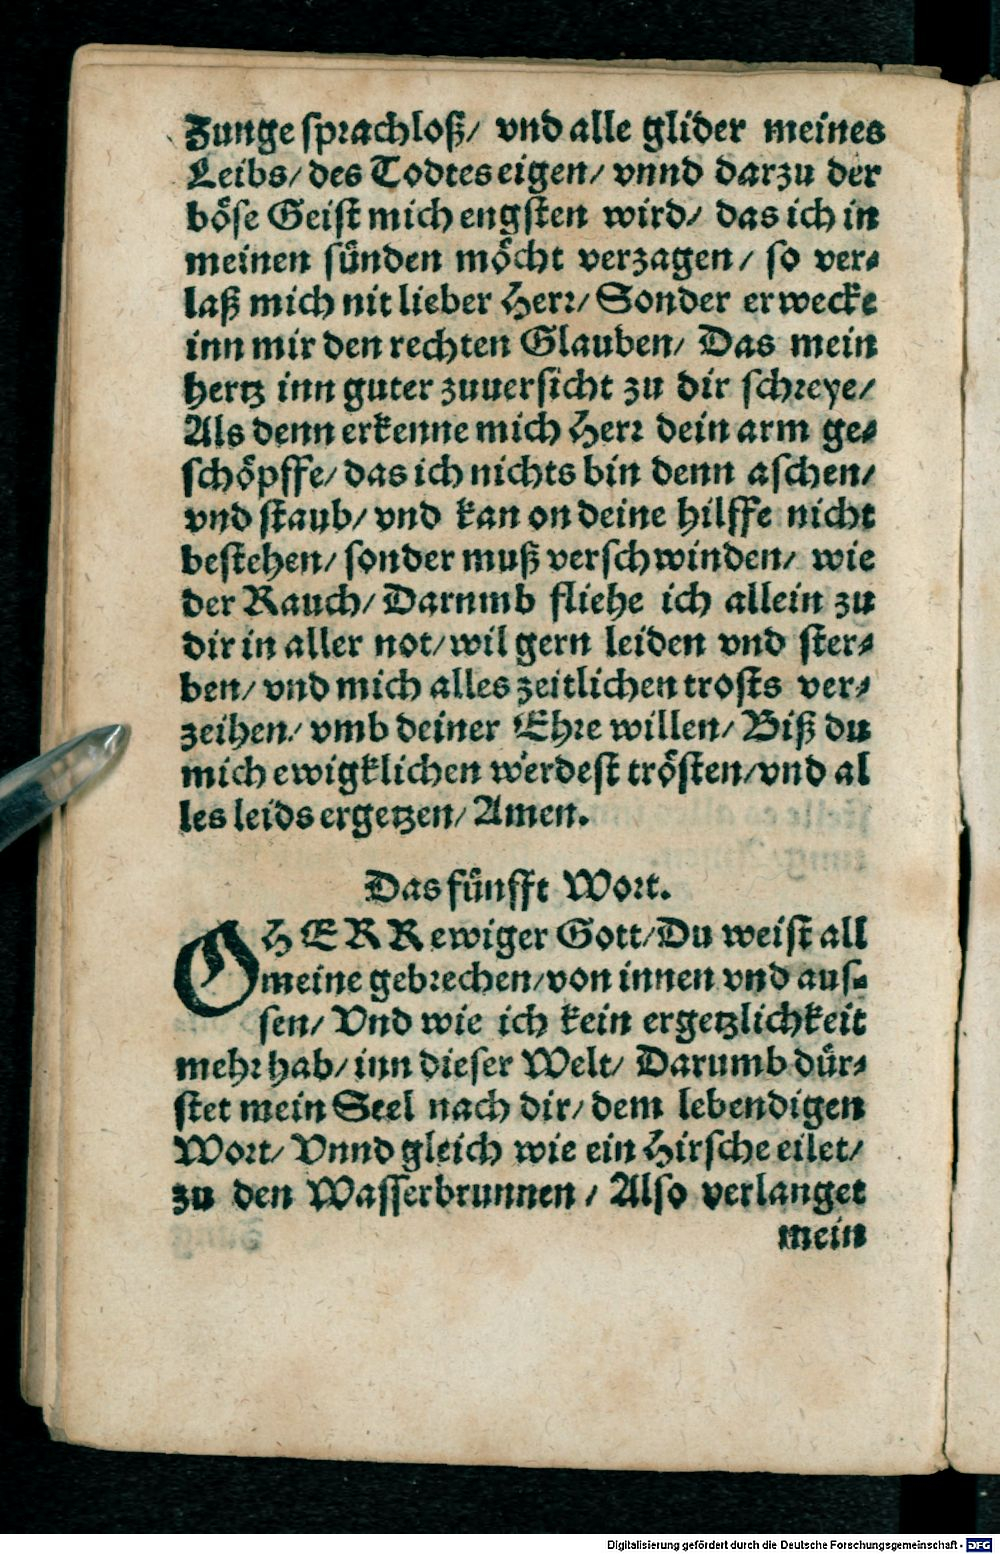 Zunge sprachloß/ vnd alle glider meines
Leibs/ des Todtes eigen/ vnnd darzu der
böse Geist mich engsten wird/ das ich in
meinen sünden möcht verzagen/ so ver-
laß mich nit lieber Herr/ Sonder erwecke
inn mir den rechten Glauben/ Das mein
hertz inn guter zuuersicht zu dir schreye/
Als denn erkenne mich Herr dein arm ge-
schöpffe/ das ich nichts bin denn aschen/
vnd staub/ vnd kan on deine hilffe nicht
bestehen/ sonder muß verschwinden/ wie
der Rauch/ Darnmb fliehe ich allein zu
dir in aller not/ wil gern leiden vnd ster-
ben/ vnd mich alles zeitlichen trosts ver-
zeihen/ vmb deiner Ehre willen/ Biß du
mich ewigklichen werdest trösten/ vnd al
les leids ergetzen/ Amen.
Das fünfft Wort.
O HERR ewiger Gott/ Du weist all
meine gebrechen/ von innen vnd aus-
sen/ Vnd wie ich kein ergetzlichkeit
mehr hab/ inn dieser Welt/ Darumb dür-
stet mein Seel nach dir/ dem lebendigen
Wort/ Vnnd gleich wie ein Hirsche eilet/
zu den Wasserbrunnen/ Also verlanget
mein
Digitalisierung gefördert durch die Deutsche Forschungsgemeinschaft - DFG